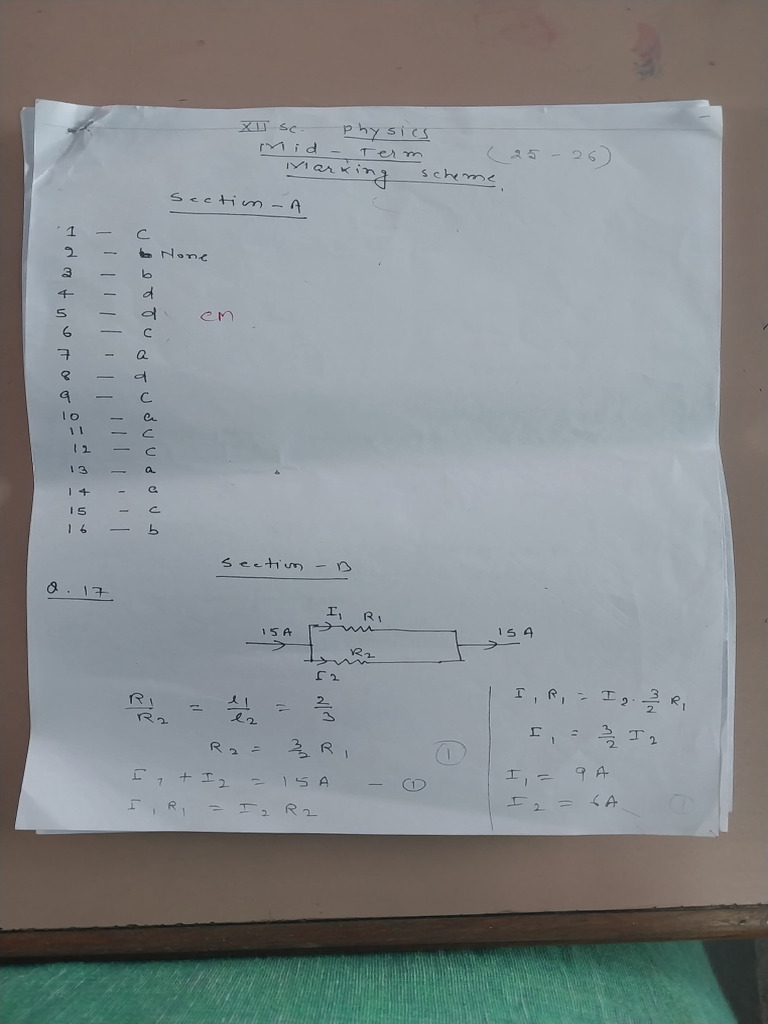 XII sc. physics
Mid - Term (25 - 26)
Marking scheme.
Section - A
1 - c
2 - None
3 - b
4 - d
5 - d cm
6 - c
7 - a
8 - d
9 - c
10 - a
11 - c
12 - c
13 - a
14 - a
15 - c
16 - b
Section - B
Q. 17
I1 R1
15A 15A
R2
I2
R1/R2 = l1/l2 = 2/3
R2 = 3/2 R1 ①
I1 + I2 = 15A - ①
I1 R1 = I2 R2
I1 R1 = I2 . 3/2 R1
I1 = 3/2 I2
I1 = 9A
I2 = 6A ①